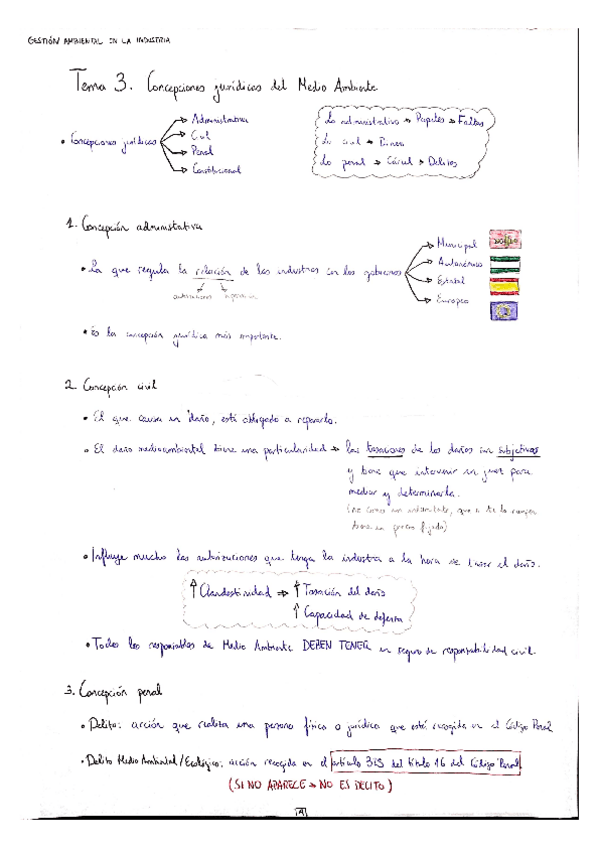 GESTIÓN AMBIENTAL EN LA INDUSTRIA
Tema 3. Concepciones jurídicas del Medio Ambiente
• Concepciones jurídicas
Administrativa
Civil
Penal
Constitucional
Lo administrativo → Papeles → Faltas
Lo civil →
Lo penal → Cárcel → Delitos
1. Concepción administrativa
• La que regula la relación de las industrias con los gobiernos
Municipal
Autonómico
Estatal
Europeo
autorizaciones
• Es la concepción jurídica más importante.
2. Concepción civil
• El que causa un daño, está obligado a repararlo.
• El daño medioambiental tiene una particularidad → las tasaciones de los daños son subjetivas
y tiene que intervenir un juez para
mediar y determinarla.
(no como un, que si te lo
tiene un precio fijado)
• Influye mucho las autorizaciones que tenga la industria a la hora de tasar el daño.
↑ Clandestinidad ⇒ ↑ Tasación del daño
↑ Capacidad de defensa
• Todos los responsables de Medio Ambiente DEBEN TENER un seguro de responsabilidad civil.
3. Concepción penal
• Delito: acción que realiza una persona física o jurídica que está recogida en el Código Penal
• Delito Medio Ambiental / Ecológico: acción recogida en el artículo 325 del título 16 del Código Penal.
(SI NO APARECE → NO ES DELITO)